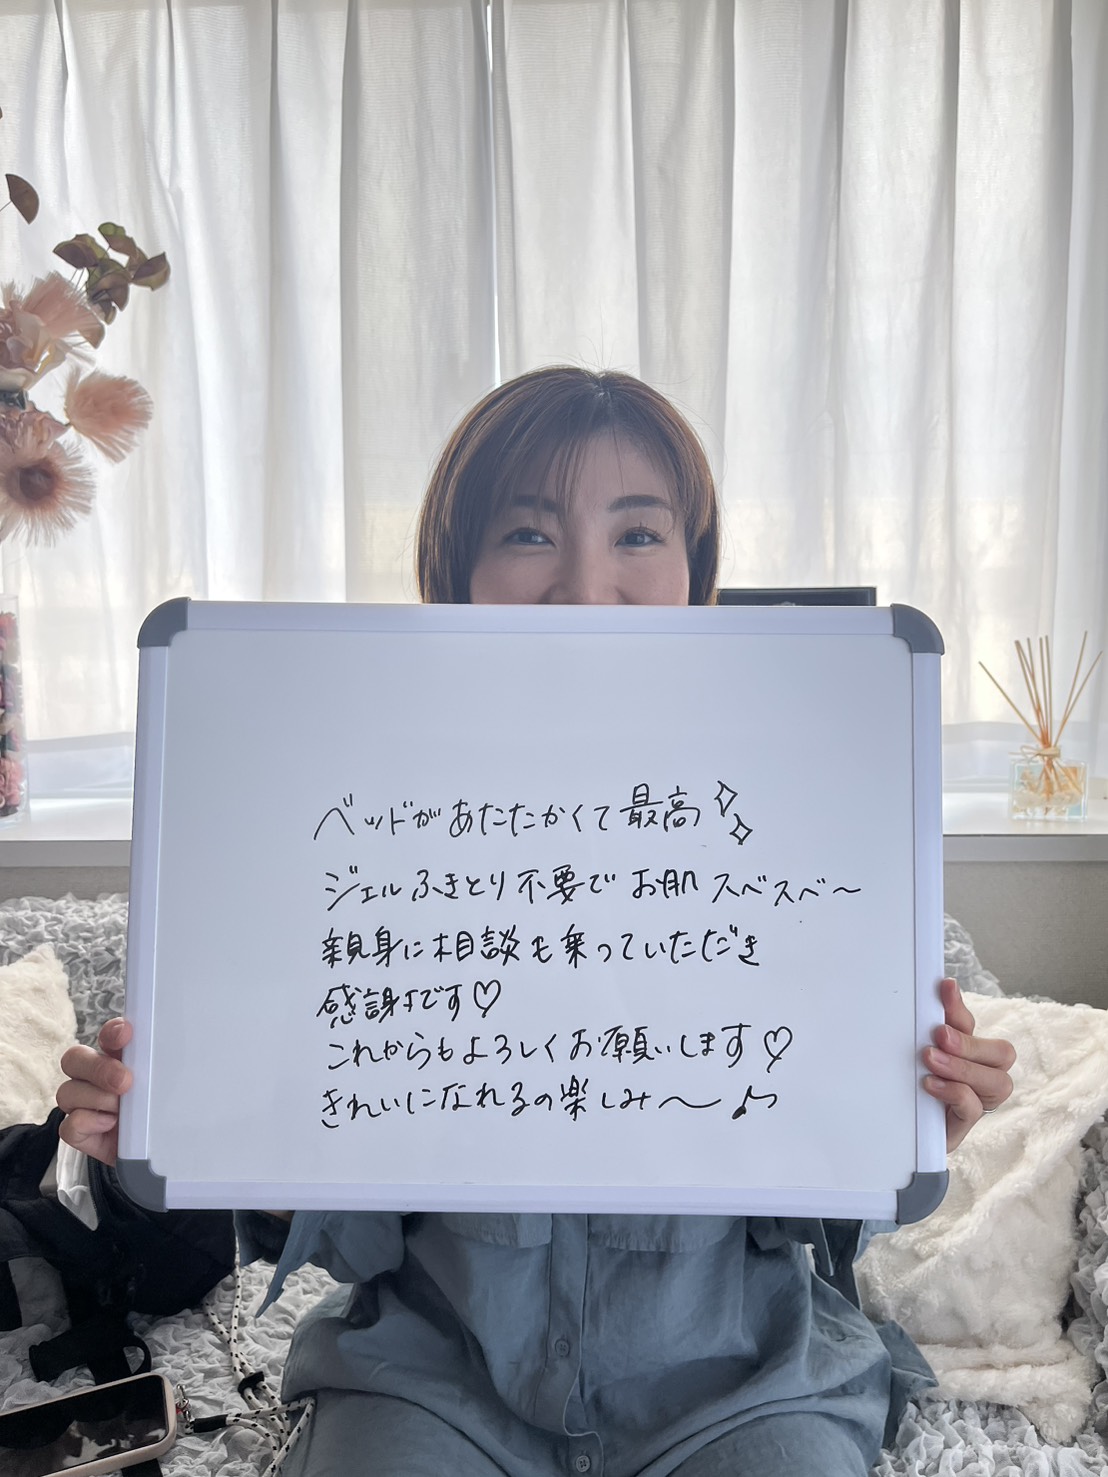 ベッドがあたたかくて最高
ジェルふきとり不要でお肌スベスベ〜
親身に相談も乗っていただき
感謝です♡
これからもよろしくお願いします♡
きれいになれるの楽しみ〜♪